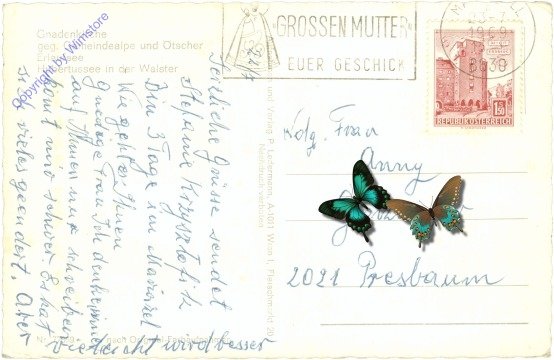 Copyright by Wimstore
Gnadenkirche
geg. Gemeindealpe und Ötscher
Erlaufsee
Hubertussee in der Walster
GROSSEN MUTTER
EUER GESCHICK
1969
8630
1.50
REPUBLIK ÖSTERREICH
Herzliche Grüsse sendet
Stefanie
Bin 3 Tage in Mariazell
Wie geht es Ihnen
Gnädige Frau Ich denke immer
an Ihnen nur schreiben
kommt mir schwer. Es hat
so vieles geändert. Aber
vieleicht wird besser
und Verlag P. Ledermann, A-1011 Wien I., Fleischmarkt 20
Nachdruck verboten
Frau
Anny
2021 Presbaum